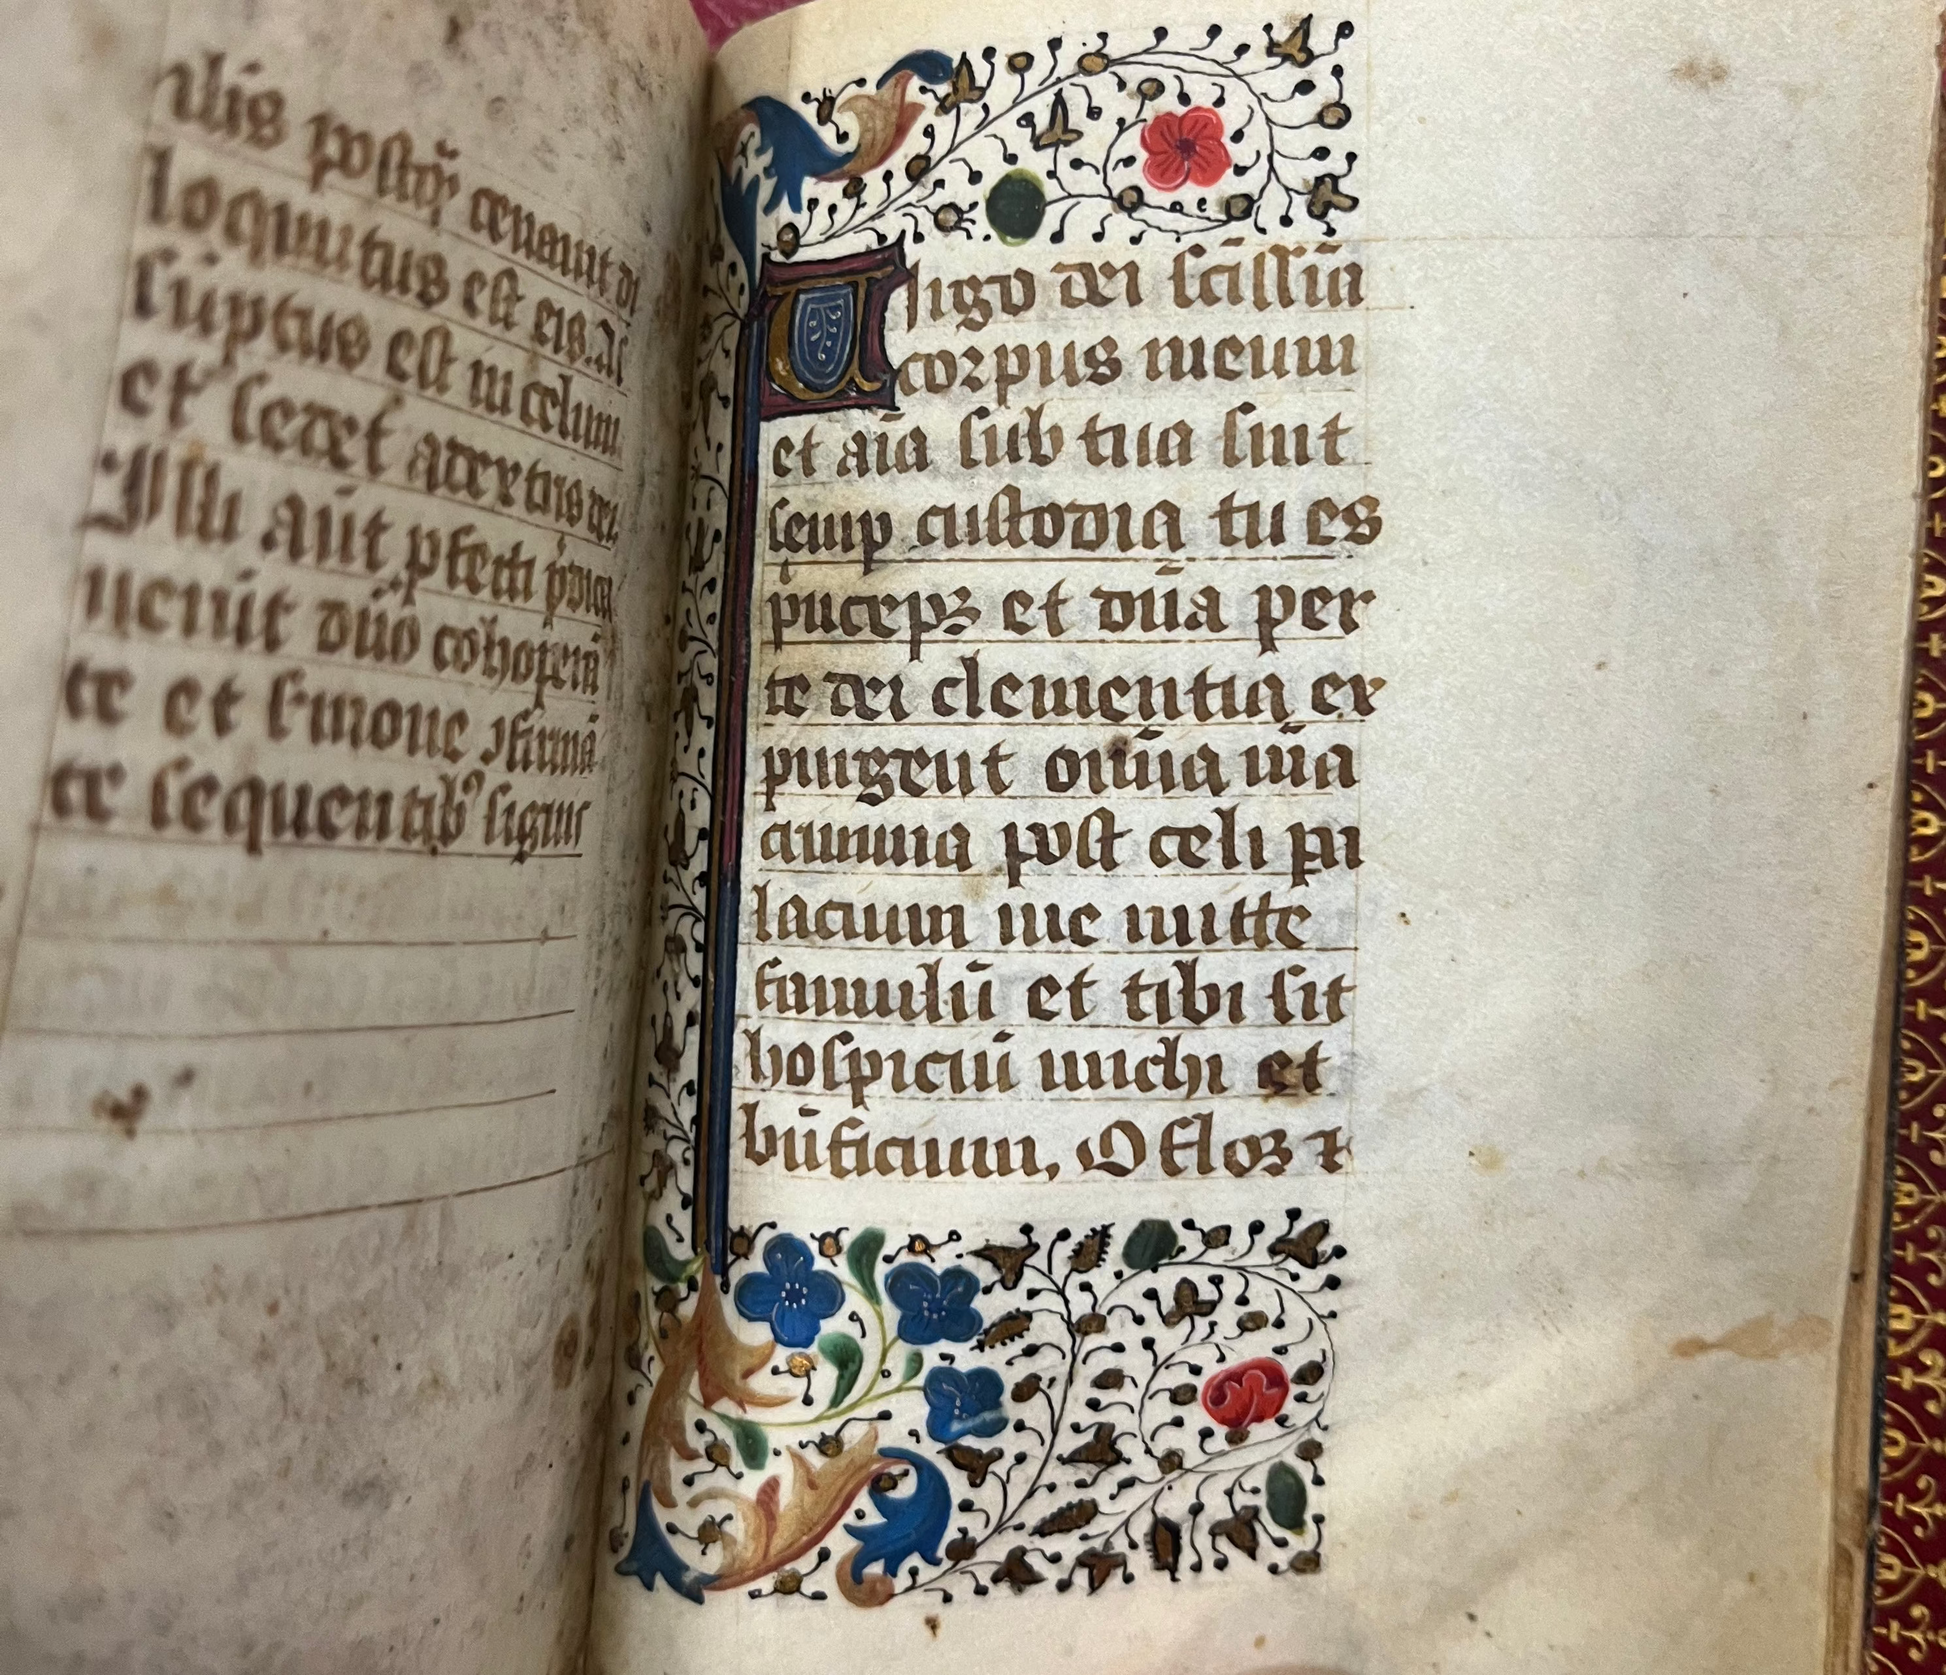 illis postq̄ cenauit di
loquutus est eis. As
sūptus est in celum
et sedet adextris dei.
Illi aūt pfecti p̄dica
uerūt dūo cohoperā
te et s̄mone ꝯfirmā
te sequentibꝰ signis
Uirgo dei sc̄issīa
corpus meum
et aīa sub tua sint
semp custodia tu es
p̄nceps et dn̄a per
te dei clementia ex
pungent om̄ia m̄a
crimina post celi pa
lacium me mitte
famulū et tibi sit
hospiciū michi et
bn̄ficium, O flos ⁊